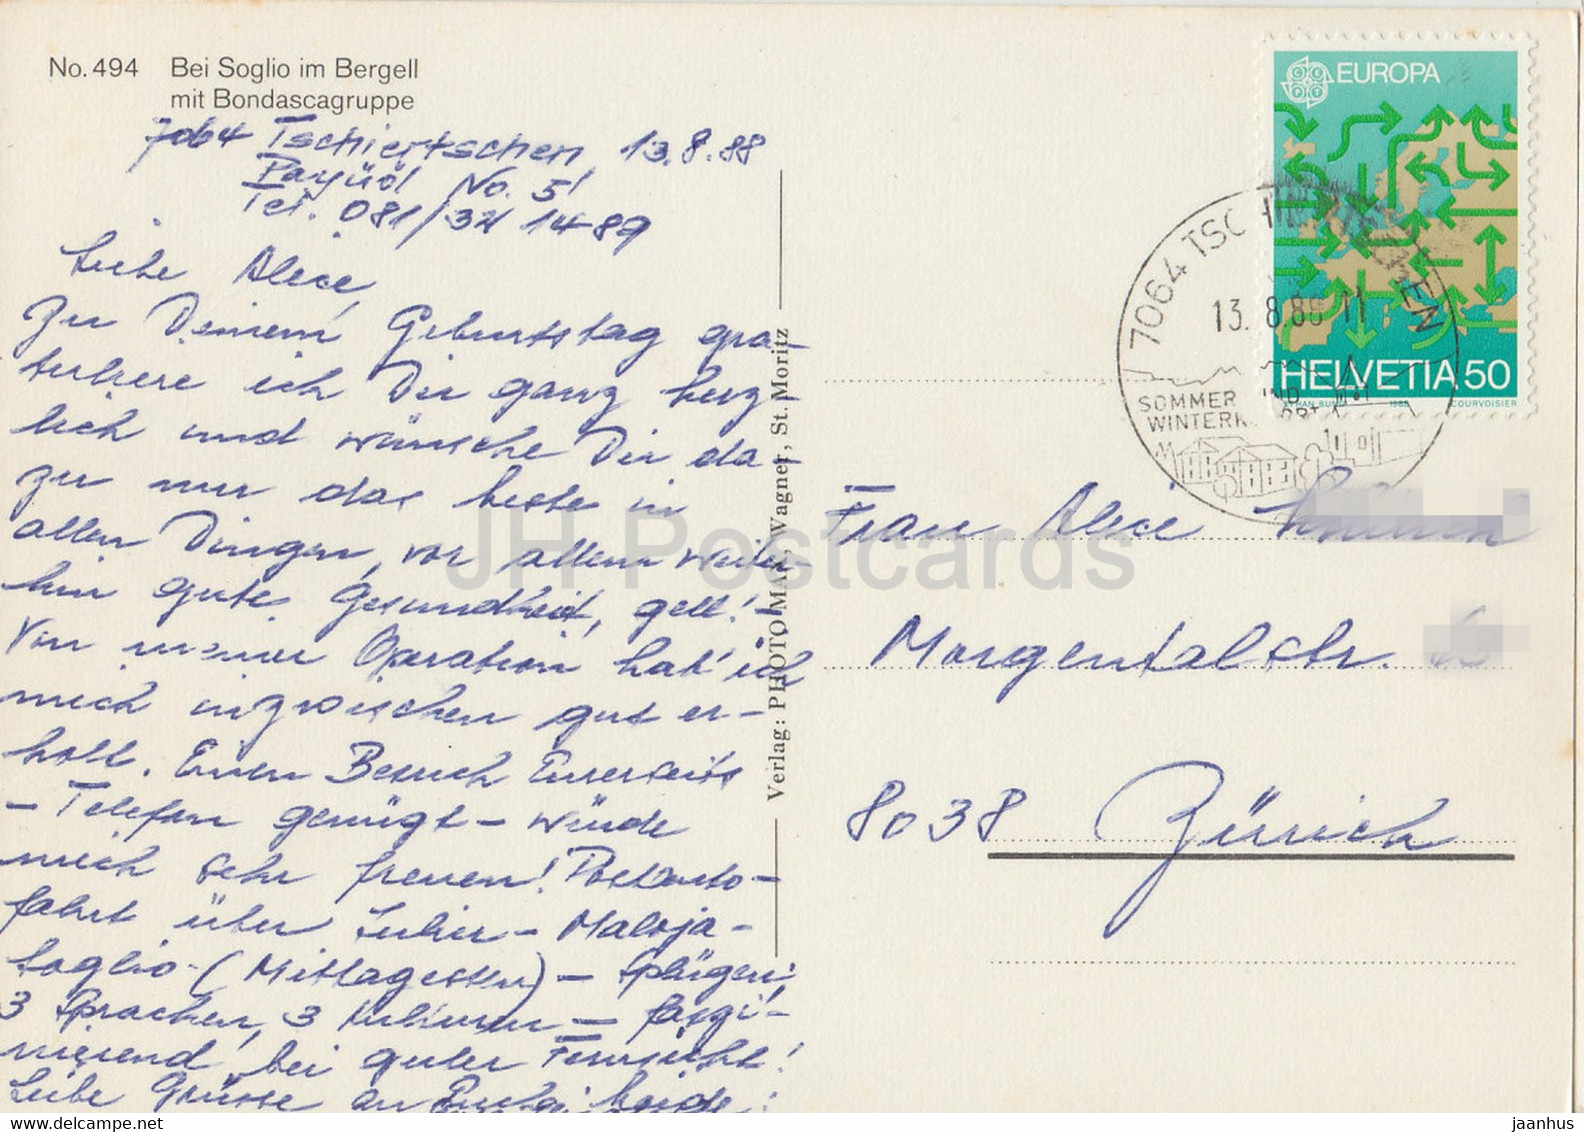 No. 494 Bei Soglio im Bergell
mit Bondascagruppe
7064 Tschiertschen, 13.8.88
No. 5
Tel. 081/31 14 89
Liebe Alice,
Zu Deinem Geburtstag gra-
tuliere ich Dir ganz herz-
lich und wünsche Dir da-
zu nur das beste in
allen Dingen, vor allem weiter-
hin gute Gesundheit, gell! –
Von meiner Operation hab' ich
mich inzwischen gut er-
holt. Einen Besuch Eurerseits
– Telefon genügt – würde
mich sehr freuen! Postauto-
fahrt über Julier – Maloja –
Soglio – (Mittagessen) – Splügen;
3 Sprachen, 3 Kulturen – faszi-
nierend, bei guter Fernsicht!
Liebe Grüsse an Euch beide
Verlag: PHOTO MAX Wagner, St. Moritz
JH Postcards
EUROPA
CEPT
HELVETIA 50
1988 COURVOISIER
7064 TSCHIERTSCHEN
13.8.88 11
SOMMER UND
WINTERKURORT
Frau Alice
Morgentalstr.
8038 Zürich
jaanhus
delcampe.net